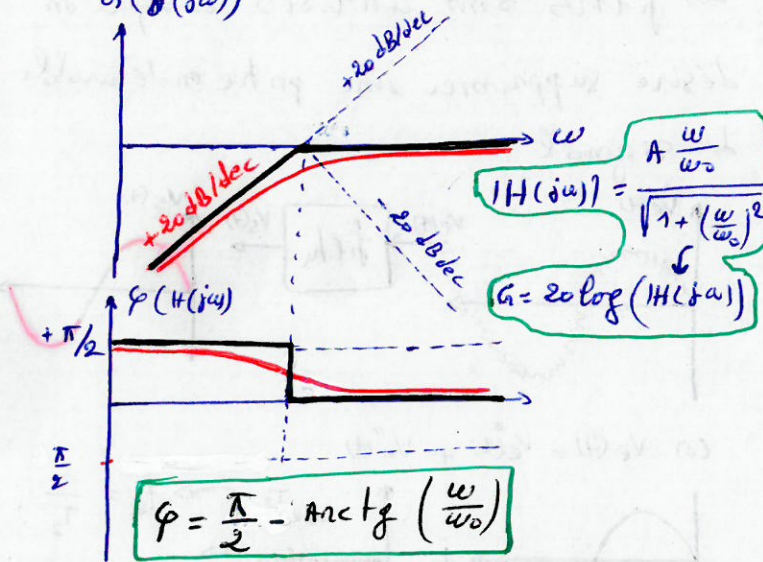 G(H(jω))
+20dB/dec
ω
+20dB/dec
-20dB/dec
|H(jω)| = A ω/ω₀ / √1 + (ω/ω₀)²
G = 20 log (|H(jω)|)
φ(H(jω)
+ π/2
π/2
φ = π/2 - Arc tg (ω/ω₀)